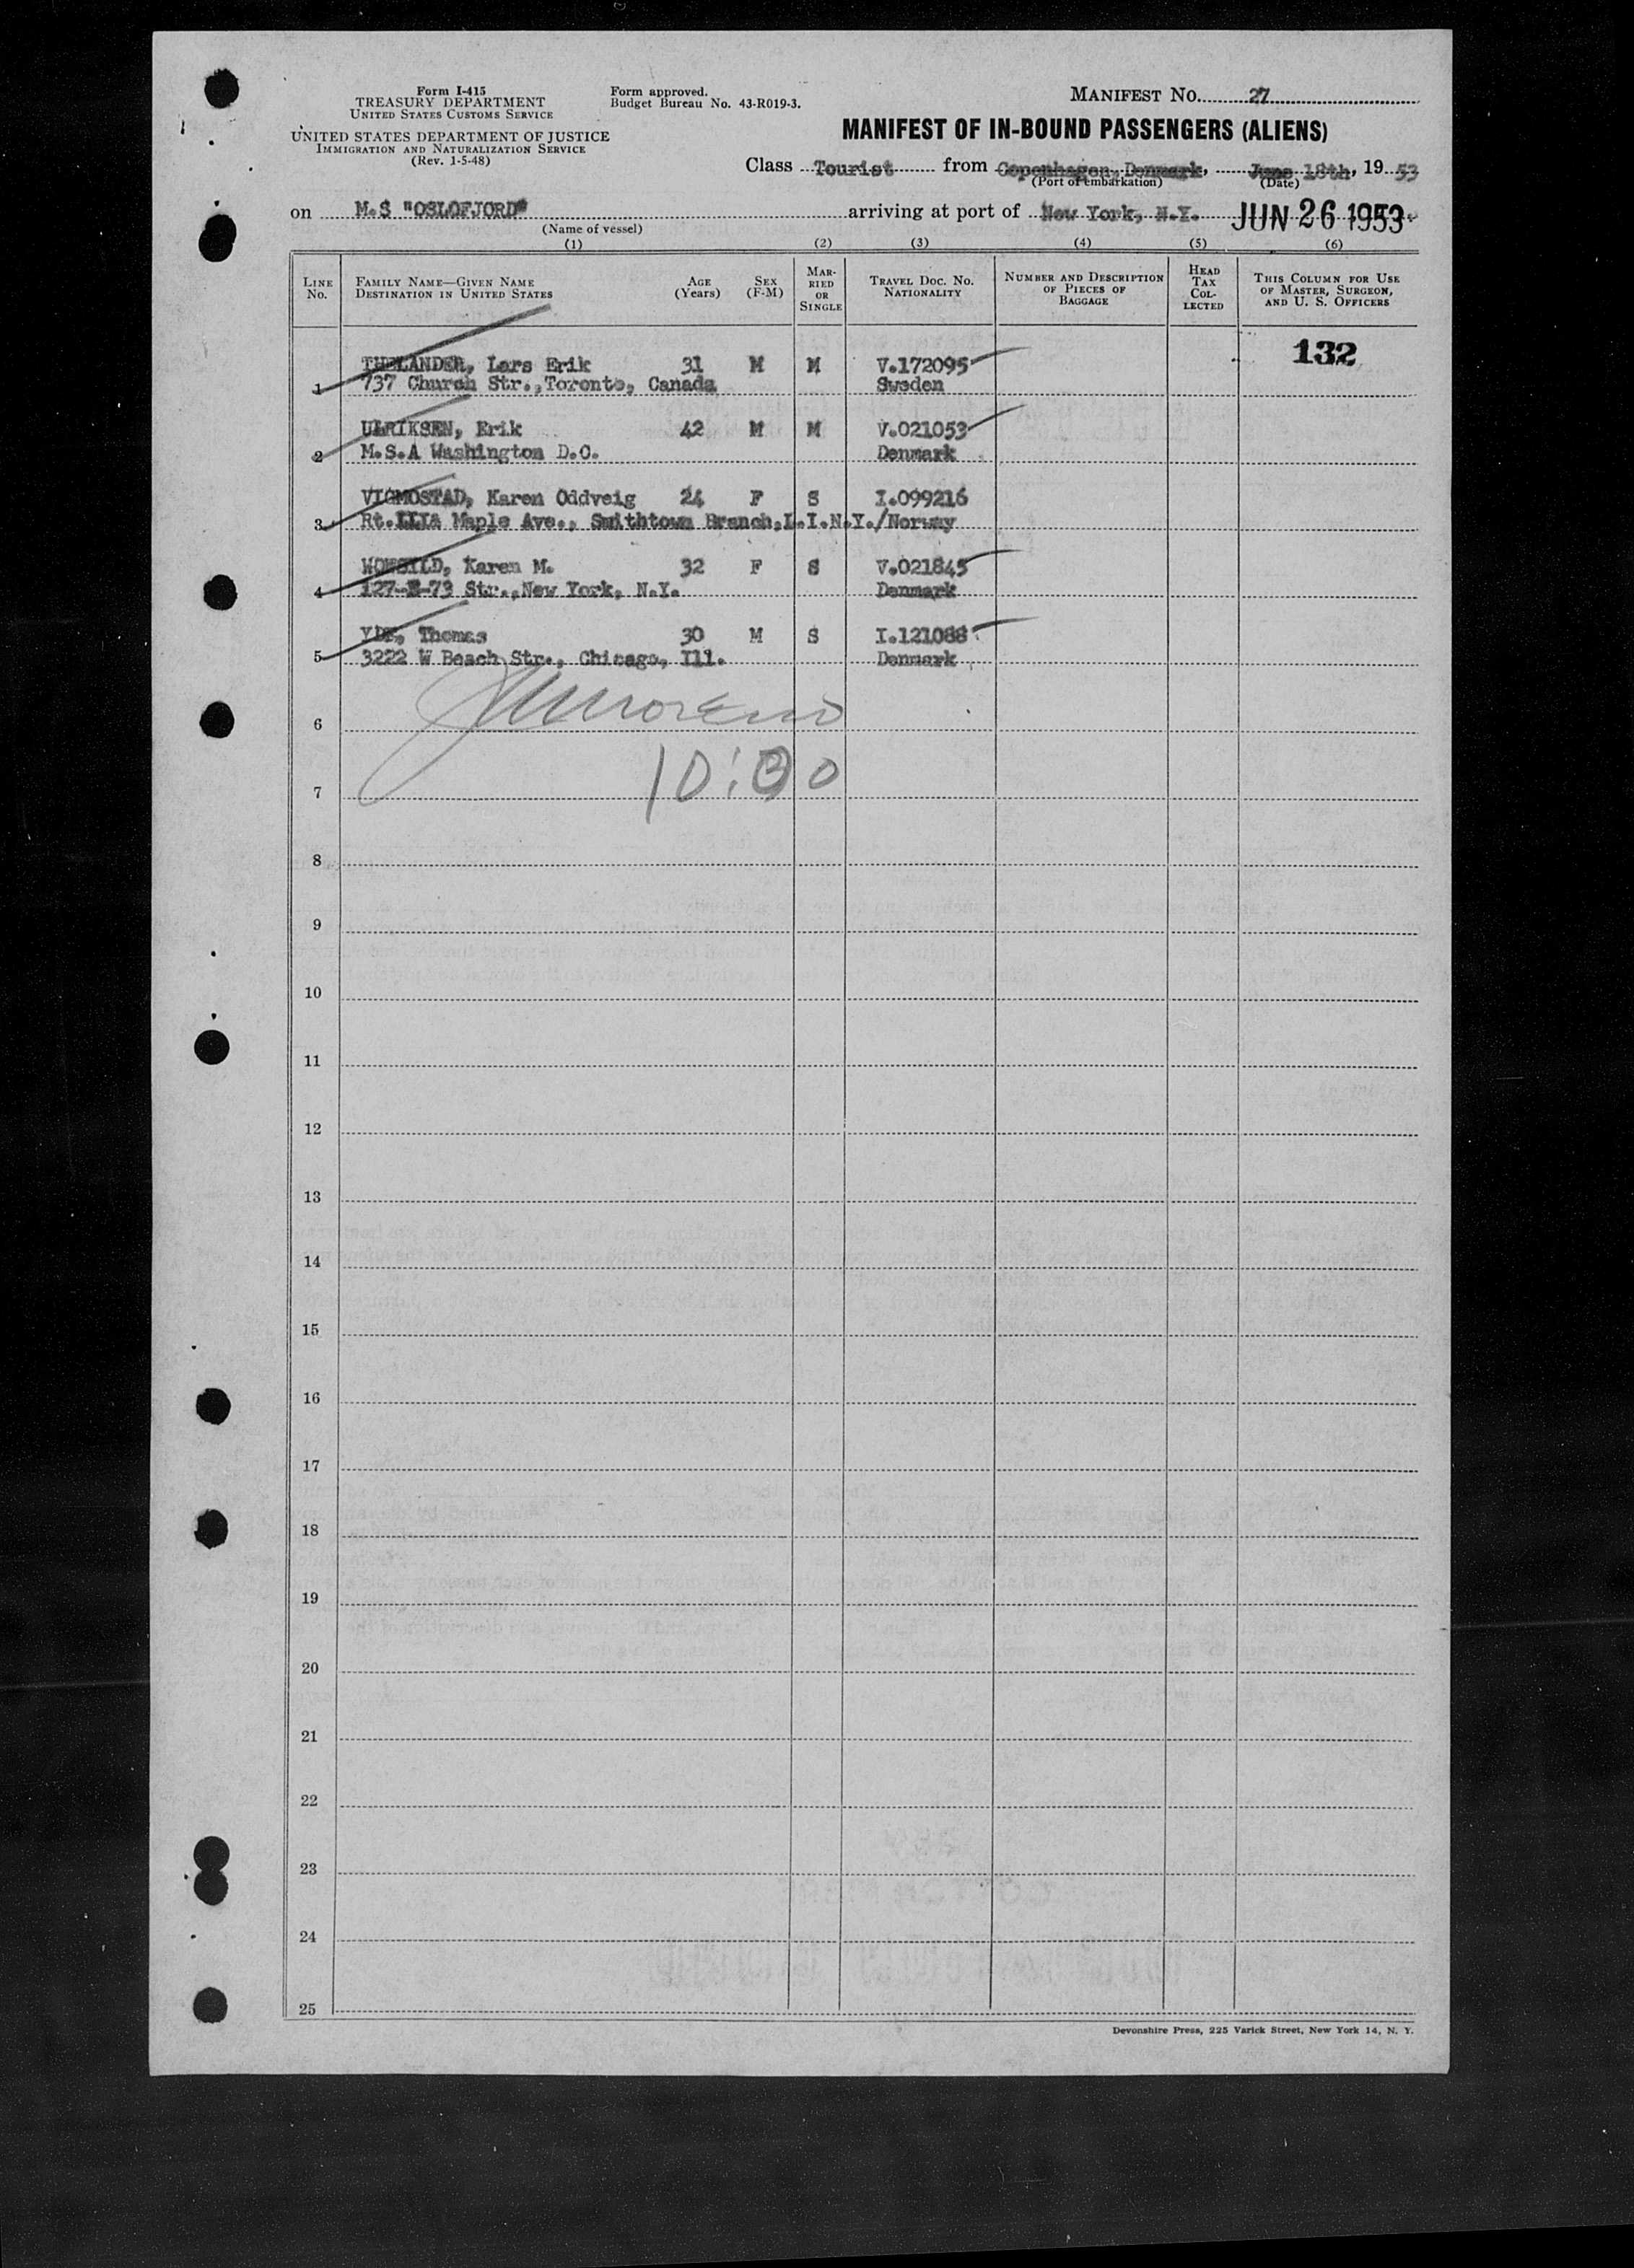 Form I-415
TREASURY DEPARTMENT
UNITED STATES CUSTOMS SERVICE
UNITED STATES DEPARTMENT OF JUSTICE
IMMIGRATION AND NATURALIZATION SERVICE
(Rev. 1-5-48)
Form approved.
Budget Bureau No. 43-R019-3.
MANIFEST NO. 27
MANIFEST OF IN-BOUND PASSENGERS (ALIENS)
Class Tourist from Copenhagen, Denmark, June 18th, 19 53
(Port of embarkation) (Date)
on M.S "OSLOFJORD" arriving at port of New York, N.Y. JUN 26 1953
(Name of vessel)
(1) (2) (3) (4) (5) (6)
LINE No. FAMILY NAME—GIVEN NAME DESTINATION IN UNITED STATES AGE (Years) SEX (F-M) MARRIED OR SINGLE TRAVEL DOC. NO. NATIONALITY NUMBER AND DESCRIPTION OF PIECES OF BAGGAGE HEAD TAX COLLECTED THIS COLUMN FOR USE OF MASTER, SURGEON, AND U. S. OFFICERS
132
THELANDER, Lars Erik 31 M M V.172095
1 737 Church Str., Toronto, Canada Sweden
ULRIKSEN, Erik 42 M M V.021053
2 M.S.A Washington D.C. Denmark
VIGMOSTAD, Karen Oddveig 24 F S I.099216
3 Rt. Maple Ave., Smithtown Branch, L.I.N.Y./Norway
Karen M. 32 F S V.021845
4 127-E-73 Str., New York, N.Y. Denmark
YDE, Thomas 30 M S I.121088
5 3222 W Beach Str., Chicago, Ill. Denmark
6
10:30
7
8
9
10
11
12
13
14
15
16
17
18
19
20
21
22
23
24
25
Devonshire Press, 225 Varick Street, New York 14, N. Y.